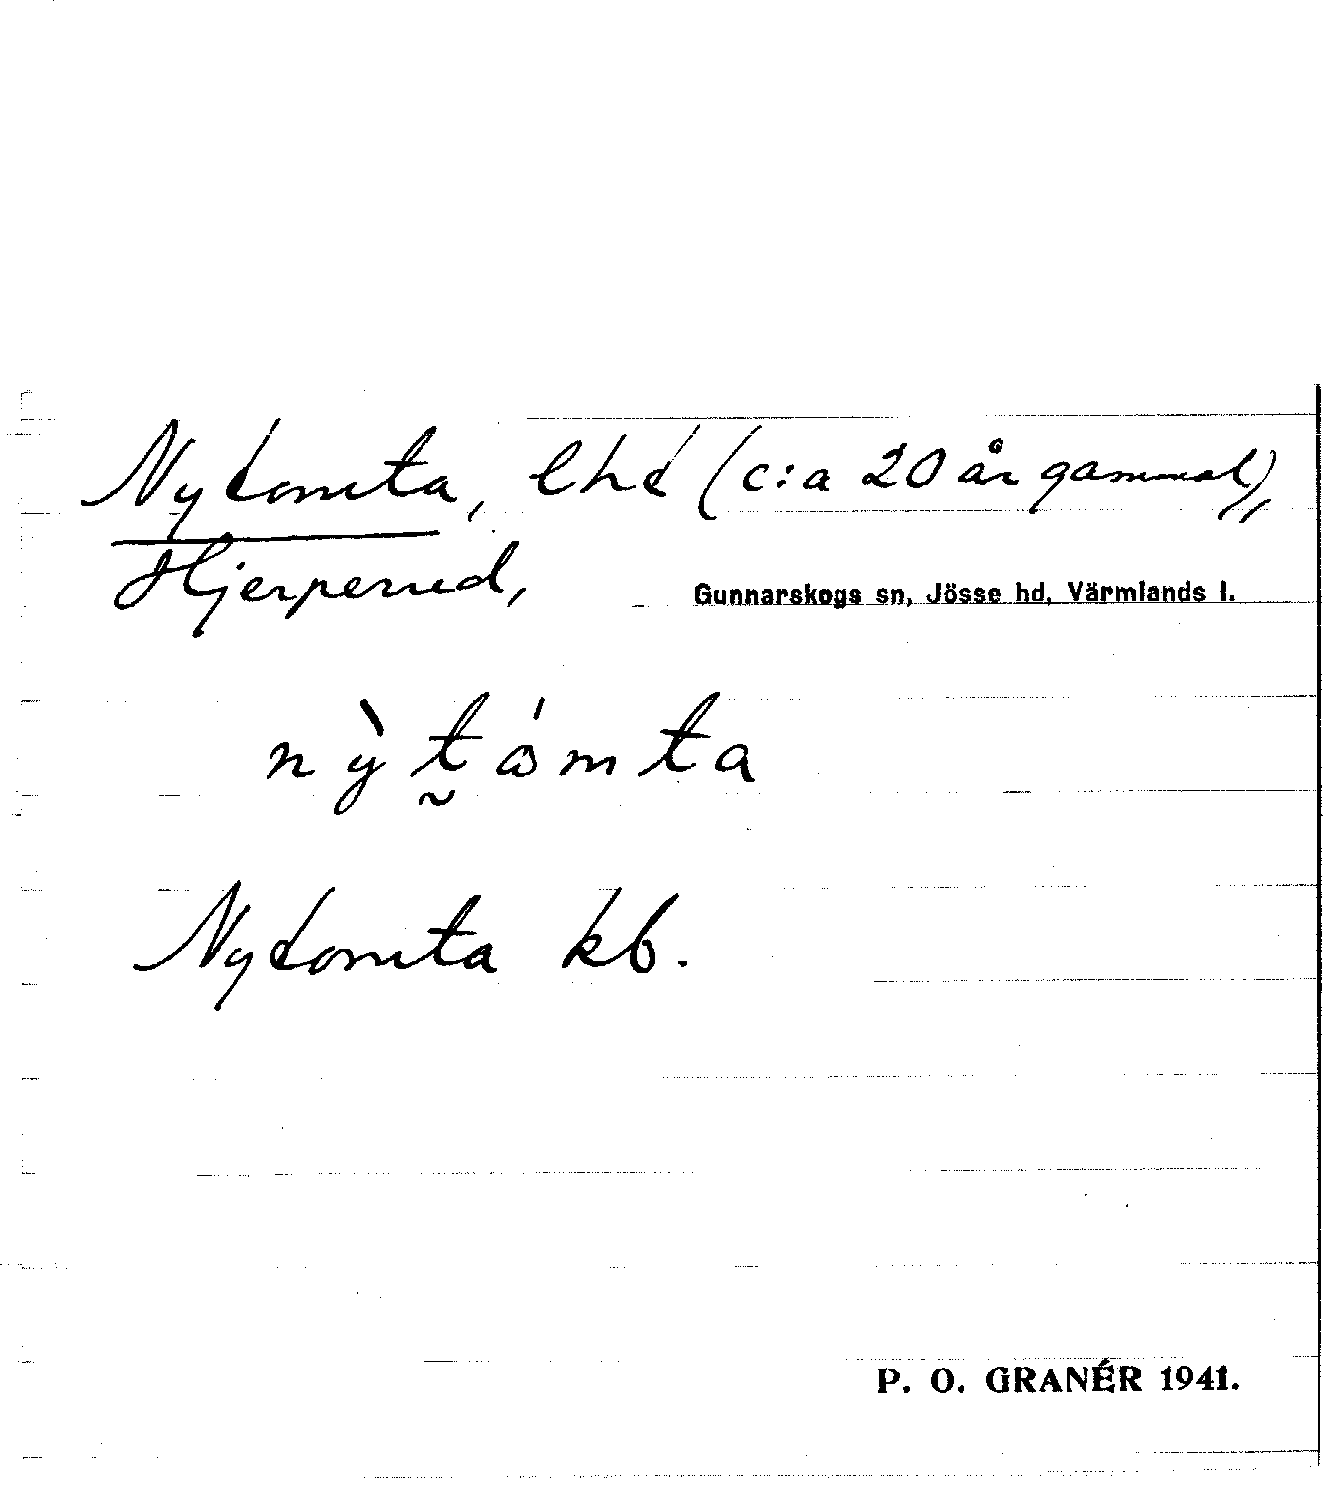 Nytomta, lhd (c:a 20 år gammal),
Hjerperud, Gunnarskogs sn, Jösse hd, Värmlands l.
nỳtómta
Nytomta kb.
P. O. GRANÉR 1941.